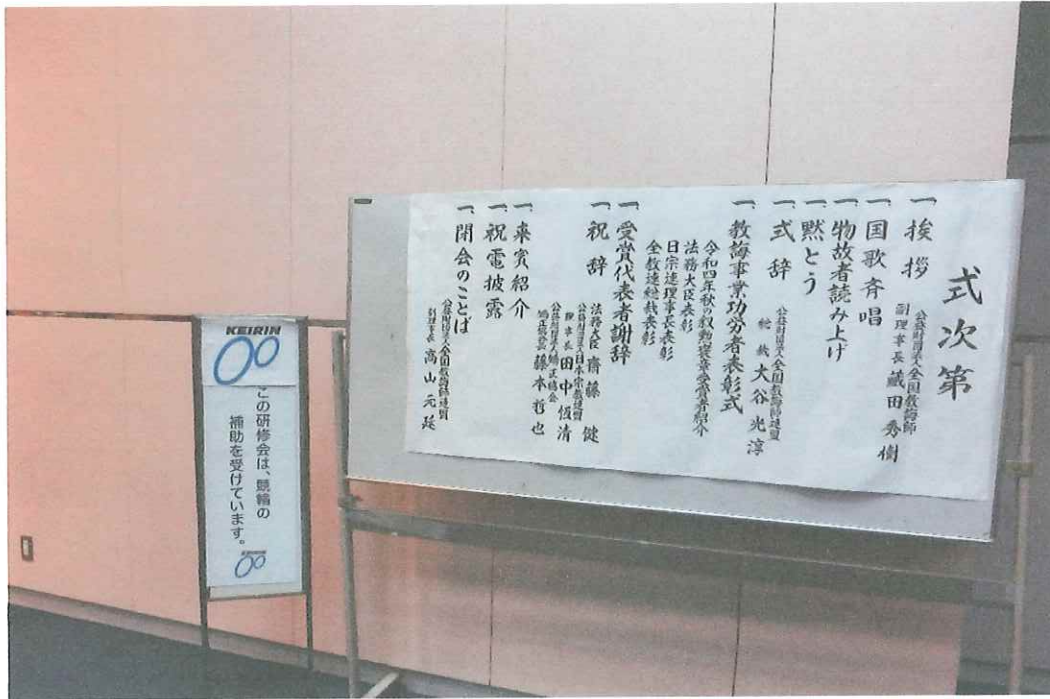 式次第
一、挨拶
公益財団法人全国教誨師
副理事長 蔵田秀樹
一、国歌斉唱
一、物故者読み上げ
一、黙とう
一、式辞
公益財団法人全国教誨師連盟
総裁 大谷光淳
一、教誨事業功労者表彰式
令和四年秋の叙勲褒章受賞者紹介
法務大臣表彰
日宗連理事長表彰
全教連総裁表彰
一、受賞代表者謝辞
一、祝辞
法務大臣 齋藤 健
公益財団法人日本宗教連盟
理事長 田中恆清
公益財団法人矯正協会
矯正協会長 藤本哲也
一、来賓紹介
一、祝電披露
一、閉会のことば
公益財団法人全国教誨師連盟
副理事長 高山元延
KEIRIN
この研修会は、競輪の
補助を受けています。
KEIRIN